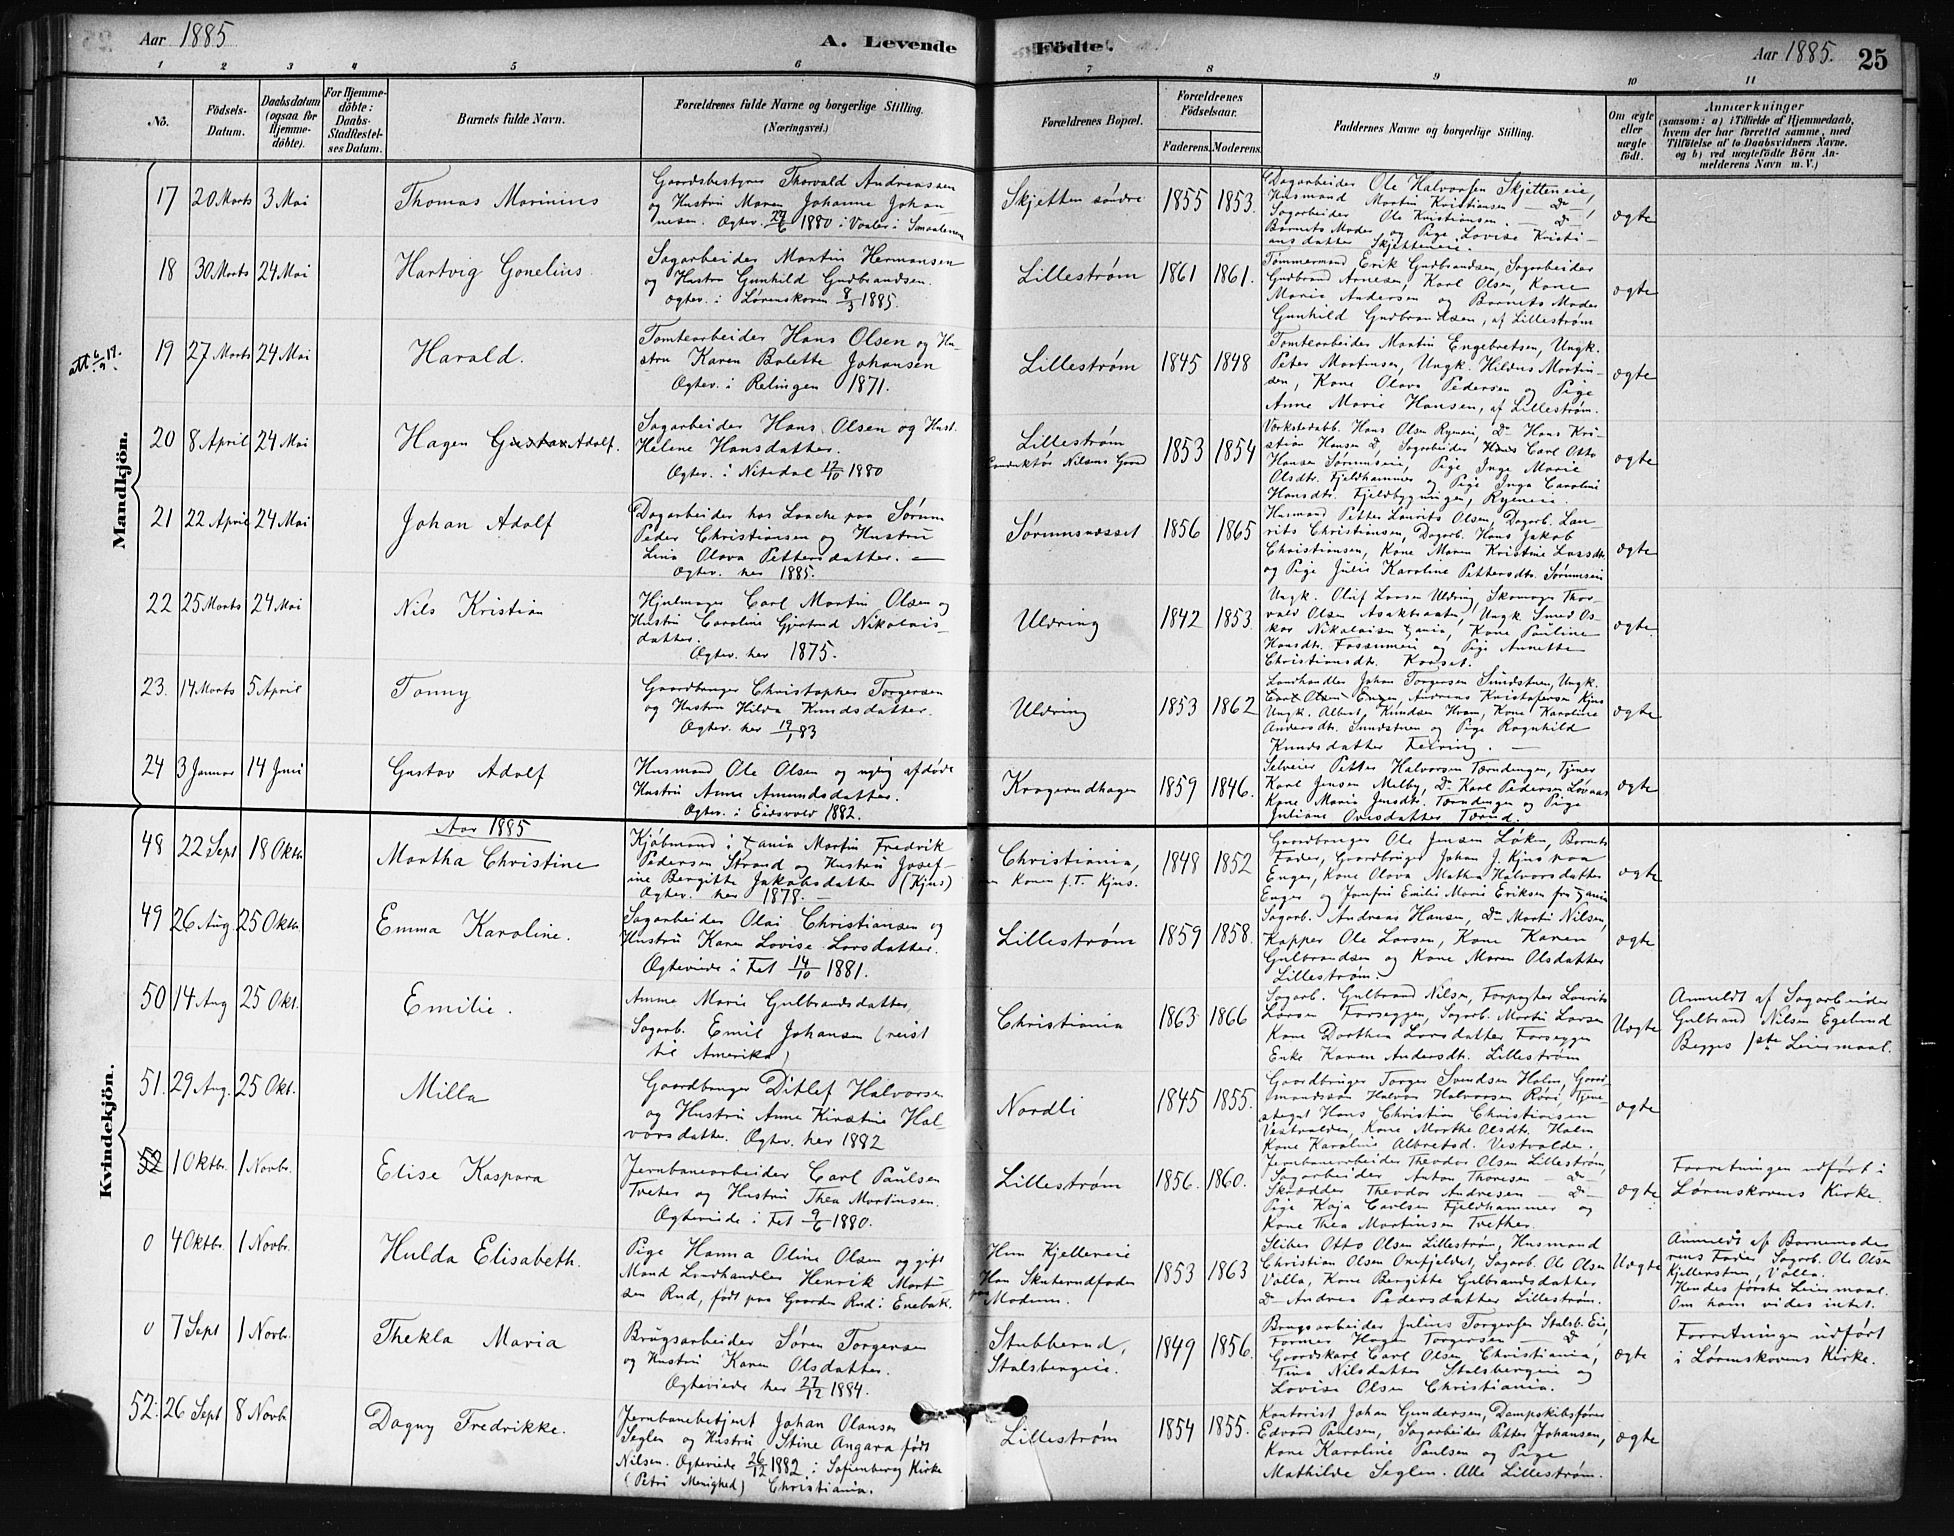 Aar 1885
A. Levende
Födte.
Aar 1885.
25
1 2 3 4 5 6 7 8 9 10 11
No.
Födsels-Datum.
Daabsdatum (ogsaa for Hjemme-döbte).
For Hjemme-döbte: Daabs-Stadfæstel-ses Datum.
Barnets fulde Navn.
Forældrenes fulde Navne og borgerlige Stilling. (Næringsvei.)
Forældrenes Bopæl.
Forældrenes Födselsaar.
Faderens. Moderens.
Faddernes Navne og borgerlige Stilling.
Om ægte eller uægte født.
Anmærkninger
(saasom: a) i Tilfælde af Hjemmedaab, hvem der har forrettet samme, med Tilföielse af to Daabsvidners Navne. og b) ved uægtefödte Börn Anmelderens Navn m. V.)
Mandkjön.
17 20 Marts 3 Mai
Thomas Marinius
Gaardsbestyrer Thorvald Andreassen
og Hustru Maren Johanne Johan-
nesen. Ægtev. 1880 i Vaaler i Smaalenene
Skjetten søndre
1855 1853
Dagarbeider Ole Halvorsen Skjetteneie,
Husmand Martin Kristiansen — Do —,
Sagarbeider Ole Kristiansen — Do —
Barnets Moder og Pige Lovise Kristi-
ansdatter Skjetteneie.
ægte
18 30 Marts 24 Mai
Hartvig Gonelius
Sagarbeider Martin Hermansen
og Hustru Gunhild Gudbrandsen.
Ægtev. i Lørenskoven 8/3 1885.
Lillestrøm
1861 1861.
Tømmermand Erik Gudbrandsen, Sagarbeider
Gudbrand Arnesen, Karl Olsen, Kone
Marie Andersen og Barnets Moder
Gunhild Gudbrandsen, af Lillestrøm
ægte
19 27 Marts 24 Mai
Harald.
Tomtearbeider Hans Olsen og Hu-
stru Karen Bolette Johansen
Ægtev. i Relingen 1871.
Lillestrøm
1845 1848
Tomtearbeider Martin Engebretsen, Ungk.
Peter Martinsen, Ungk. Hildus Martin-
sen, Kone Olava Pedersen og Pige
Anne Marie Hansen, af Lillestrøm.
ægte
20 8 April 24 Mai
Hagen Gustav Adolf.
Sagarbeider Hans Olsen og Hust.
Helene Hansdatter.
Ægtev. i Nitedal 1880
Lillestrøm
Conduktør Nilsens Gaard
1853 1854
Verkstedarb. Hans Olsen Ryenei, Do Hans Kri-
stian Hansen Do, Sagarbeider Carl Otto
Hansen Sørumseie, Pige Inge Marie
Olsdtr. Fjeldhammer og Pige Inga Caroline
Hansdtr. Fjeldbygningen, Ryeneie.
ægte
21 22 April 24 Mai
Johan Adolf
Dagarbeider hos Laache paa Sørum
Peder Christiansen og Hustru
Lina Olava Pettersdatter. —
Ægtev. her 1885.
Sørumsnæsset
1856 1865
Husmand Petter Laurits Olsen, Dagarb. Lau-
rits Christiansen, Dagarb. Hans Jakob
Christiansen, Kone Maren Kristine Larsdtr.
og Pige Julie Karoline Pettersdtr. Sørumseie
ægte
22 25 Marts 24 Mai
Nils Kristian
Hjulmager Carl Martin Olsen og
Hustru Caroline Gjertrud Nikolais-
datter.
Ægtev. her 1875.
Uldring
1842 1853.
Ungk. Oluf Larsen Uldring, Skomager Thor-
vald Olsen Asakbraaten, Ungk. Smed Os-
kar Nikolaisen, Kone Pauline
Hansdtr. Fossumeie og Pige Annette
Christiansdtr. Korset.
ægte
23. 14 Marts 5 April
Tonny
Gaardbruger Christopher Torgersen
og Hustru Hilda Knudsdatter.
Ægtev. her 83
Uldring
1853 1862
Landhandler Johan Torgersen Sundstuen, Ungk.
Andreas Kristofersen Kjus
Ungk. Albert Knudsen Hvam, Kone Karoline
Andersdtr. Sundstuen og Pige Ragnhild
Knudsdatter Feiring. —
ægte
24 3 Januar 14 Juni
Gustav Adolf
Husmand Ole Olsen og nylig afdøde
Hustru Anne Amundsdatter.
Ægtev. i Eidsvold 1882.
Kragerudhagen
1859 1846.
Selveier Petter Halvorsen Tærudengen, Tjener
Karl Jensen Melby, Do Karl Pedersen Løvaas
Kone Maria Jensdtr. Tærudengen og Pige
Juliane Ovesdatter Tærud.
ægte
Kvindekjön.
Aar 1885
48 22 Sept 18 Oktb.
Martha Christine
Kjøbmand i Martin Fredrik
Pedersen Strand og Hustru Josef-
ine Bergitte Jakobsdatter (Kjus)
Ægtev. her 1878. —
Christiania,
Konen p.T. Kjus.
1848 1852
Gaardbruger Ole Jensen Løken, Barnets
Fader, Gaardbruger Johan J. Kjus paa
Enger, Kone Olava Mathea Halvorsdatter
Enger og Jomfru Emilie Marie Eriksen fra
ægte
49 26 Aug 25 Oktb.
Emma Karoline.
Sagarbeider Olai Christiansen og
Hustru Karen Lovise Larsdatter.
Ægteviede i Fet 14/10 1881.
Lillestrøm
1859 1858.
Sagarb. Andreas Hansen, Do Martin Nilsen,
Kapper Ole Larsen, Kone Karen
Gulbrandsen og Kone Maren Olsdatter
Lillestrøm.
ægte
50 14 Aug 25 Okt.
Emilie.
Anne Marie Gulbrandsdatter
Sagarb. Emil Johansen (reist
til Amerika)
Christiania
1863 1866
Sagarb. Gulbrand Nilsen, Forpagter Laurits
Larsen Forseggen, Sagarb. Martin Larsen
Kone Dorthea Larsdatter Forseggen
Enke Karen Andersdtr. Lillestrøm
Uægte
Anmeldt af Sagarbeider
Gulbrand Nilsen Egelund
Begges 1ste Leiermaal.
51. 29 Aug. 25 Okt.
Milla
Gaardbruger Ditlef Halvorsen
og Hustru Anne Kirstine Hal-
vorsdatter. Ægtev. her 1882
Nordli
1845 1855.
Gaardbruger Torger Svendsen Holm, Gaard-
mandssøn Halvor Halvorsen Røisi, Tjene-
stegut Hans Christian Christiansen
Vestvolden, Kone Marthe Olsdtr. Holm
Kone Karoline Albretsd. Vestvolden.
ægte
52 1 Oktbr. 1 Novbr.
Elise Kaspara
Jernbanearbeider Carl Paulsen
Træter og Hustru Thea Martinsen.
Ægteviede i Fet 9/6 1880.
Lillestrøm
1856. 1860.
Jernbanearbeider Theodor Olsen Lillestrøm,
Sagarbeider Anton Thoresen — Do —
Skrædder Theodor Andresen — Do —
Pige Kaja Carlsen Fjeldhammer og
Kone Thea Martinsen Træther.
ægte
Forretningen udført i
Lørenskovens Kirke.
0 4 Oktbr. 1 Novbr.
Hulda Elisabeth.
Pige Hanna Oline Olsen og gift
Mand Landhandler Henrik Martin-
sen Rud, født paa Gaarden Rud i Enebak.
Hun Kjellereie
Han Skuterudfoden
paa Modum.
1853 1863
Sliber Otto Olsen Lillestrøm, Husmand
Christian Olsen Ovefjeldet, Sagarb. Ole Olsen
Volla, Kone Bergitte Gulbrandsdatter
Do Andrea Pedersdatter Lillestrøm.
Uægte
Anmeldt af Barnemode-
rens Fader Sagarb. Ole Olsen
Kjellerstuen, Volla.
Hendes første Leiermaal.
Om ham vides intet.
0 7 Sept 1 Novbr.
Thekla Maria
Brugsarbeider Søren Torgersen
og Hustru Karen Olsdatter.
Ægteviede her 27/12 1884.
Stubberud,
Stalsbergeie.
1849 1856.
Brugsarbeider Julius Torgersen Stalsb. Eie,
Former Hagen Torgersen — Do —
Gaardskarl Carl Olsen Christiania,
Tina Nilsdatter Stalsbergeie og
Lovise Olsen Christiania.
ægte
Forretningen udført
i Lørenskovens Kirke.
52. 26 Sept 8 Novbr.
Dagny Fredrikke.
Jernbanebetjent Johan Olausen
Seglen og Hustru Stine Angara født
Nilsen. Ægteviede 26/12 1882 i Sofienberg Kirke
(Petri Menighed) Christiania.
Lillestrøm
1854 1855.
Kontorist Johan Gundersen, Dampskibsfører
Edvard Paulsen, Sagarbeider Petter Johansen,
Kone Karoline Paulsen og Pige
Mathilde Seglen. Alle Lillestrøm.
ægte